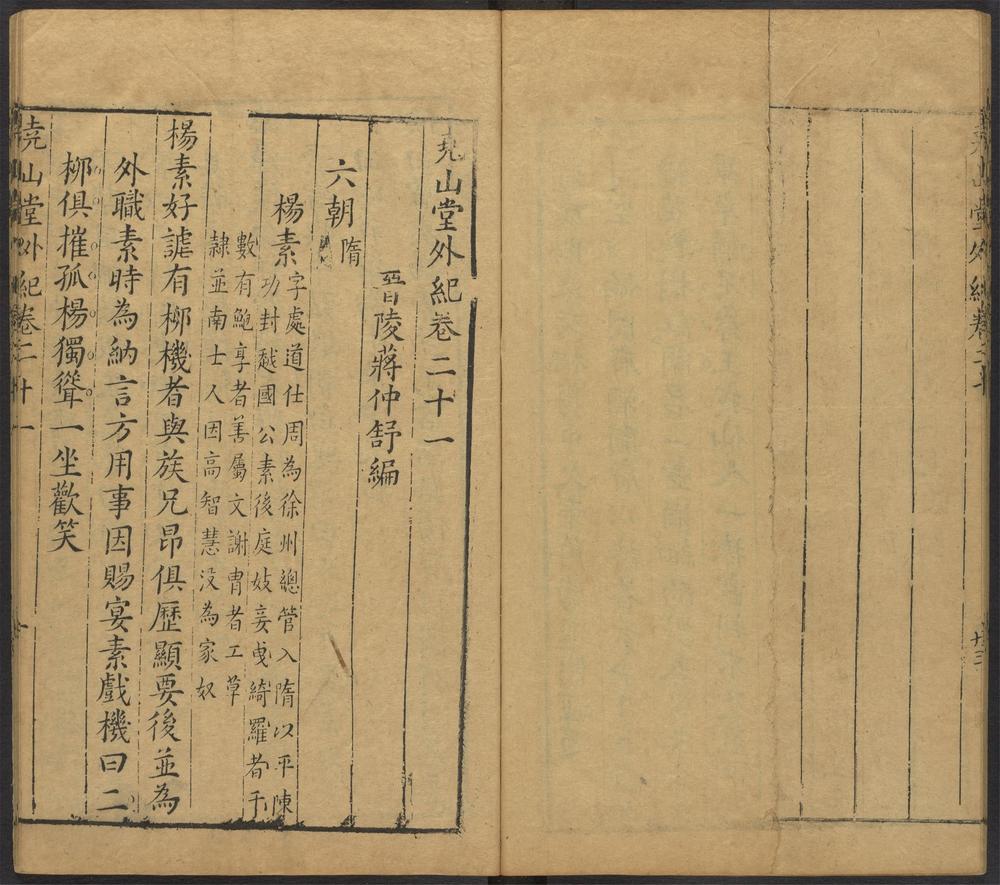 堯山堂外紀卷二十
堯山堂外紀卷二十一
晉陵蔣仲舒編
六朝
隋
楊素
字處道仕周為徐州總管入隋以平陳
功封越國公素後庭妓妾曵綺羅者千
數有鮑亨者善屬文謝胄者工草
隸並南士人因高智慧没為家奴
楊素好謔有柳機者與族兄昂俱歷顯要後並為
外職素時為納言方用事因賜宴素戲機曰二
柳俱摧孤楊獨聳一坐歡笑
堯山堂外紀卷二十一
一